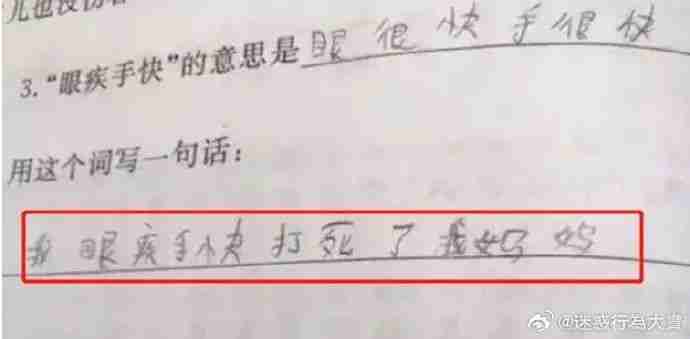 3.“眼疾手快”的意思是眼很快手很快
用这个词写一句话：
我眼疾手快打死了我妈妈
@迷惑行為大賞